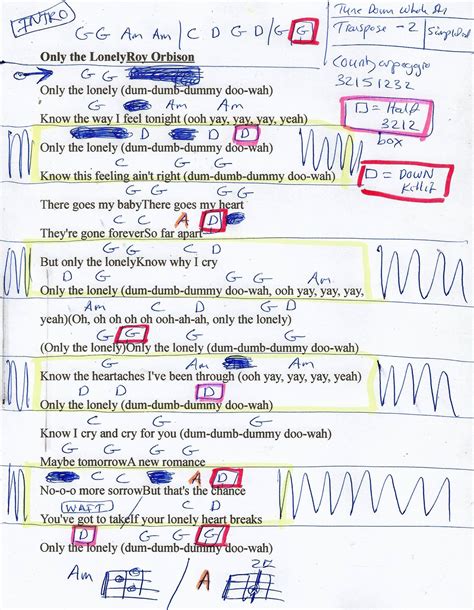 INTRO
G G Am Am / C D G D / G G
Tune Down Whole
Transpose - 2
simplified
Only the LonelyRoy Orbison
G G
Only the lonely (dum-dumb-dummy doo-wah)
G Am Am
Know the way I feel tonight (ooh yay, yay, yay, yeah)
D D D
Only the lonely (dum-dumb-dummy doo-wah)
C G G
Know this feeling ain't right (dum-dumb-dummy doo-wah)
G G
There goes my babyThere goes my heart
C C A D
They're gone foreverSo far apart
G G C D
But only the lonelyKnow why I cry
D G G Am
Only the lonely (dum-dumb-dummy doo-wah, ooh yay, yay, yay,
Am C D
yeah)(Oh, oh oh oh oh ooh-ah-ah, only the lonely)
G G
(Only the lonely)Only the lonely (dum-dumb-dummy doo-wah)
G Am Am
Know the heartaches I've been through (ooh yay, yay, yay, yeah)
D
Only the lonely (dum-dumb-dummy doo-wah)
C G G
Know I cry and cry for you (dum-dumb-dummy doo-wah)
G G
Maybe tomorrowA new romance
C C A D
No-o-o more sorrowBut that's the chance
WAIT C D
You've got to takeIf your lonely heart breaks
D G G G
Only the lonely (dum-dumb-dummy doo-wah)
Am / A 2fr
Country arpeggio
32151232
= Half
3212
box
= DOWN
Kill it